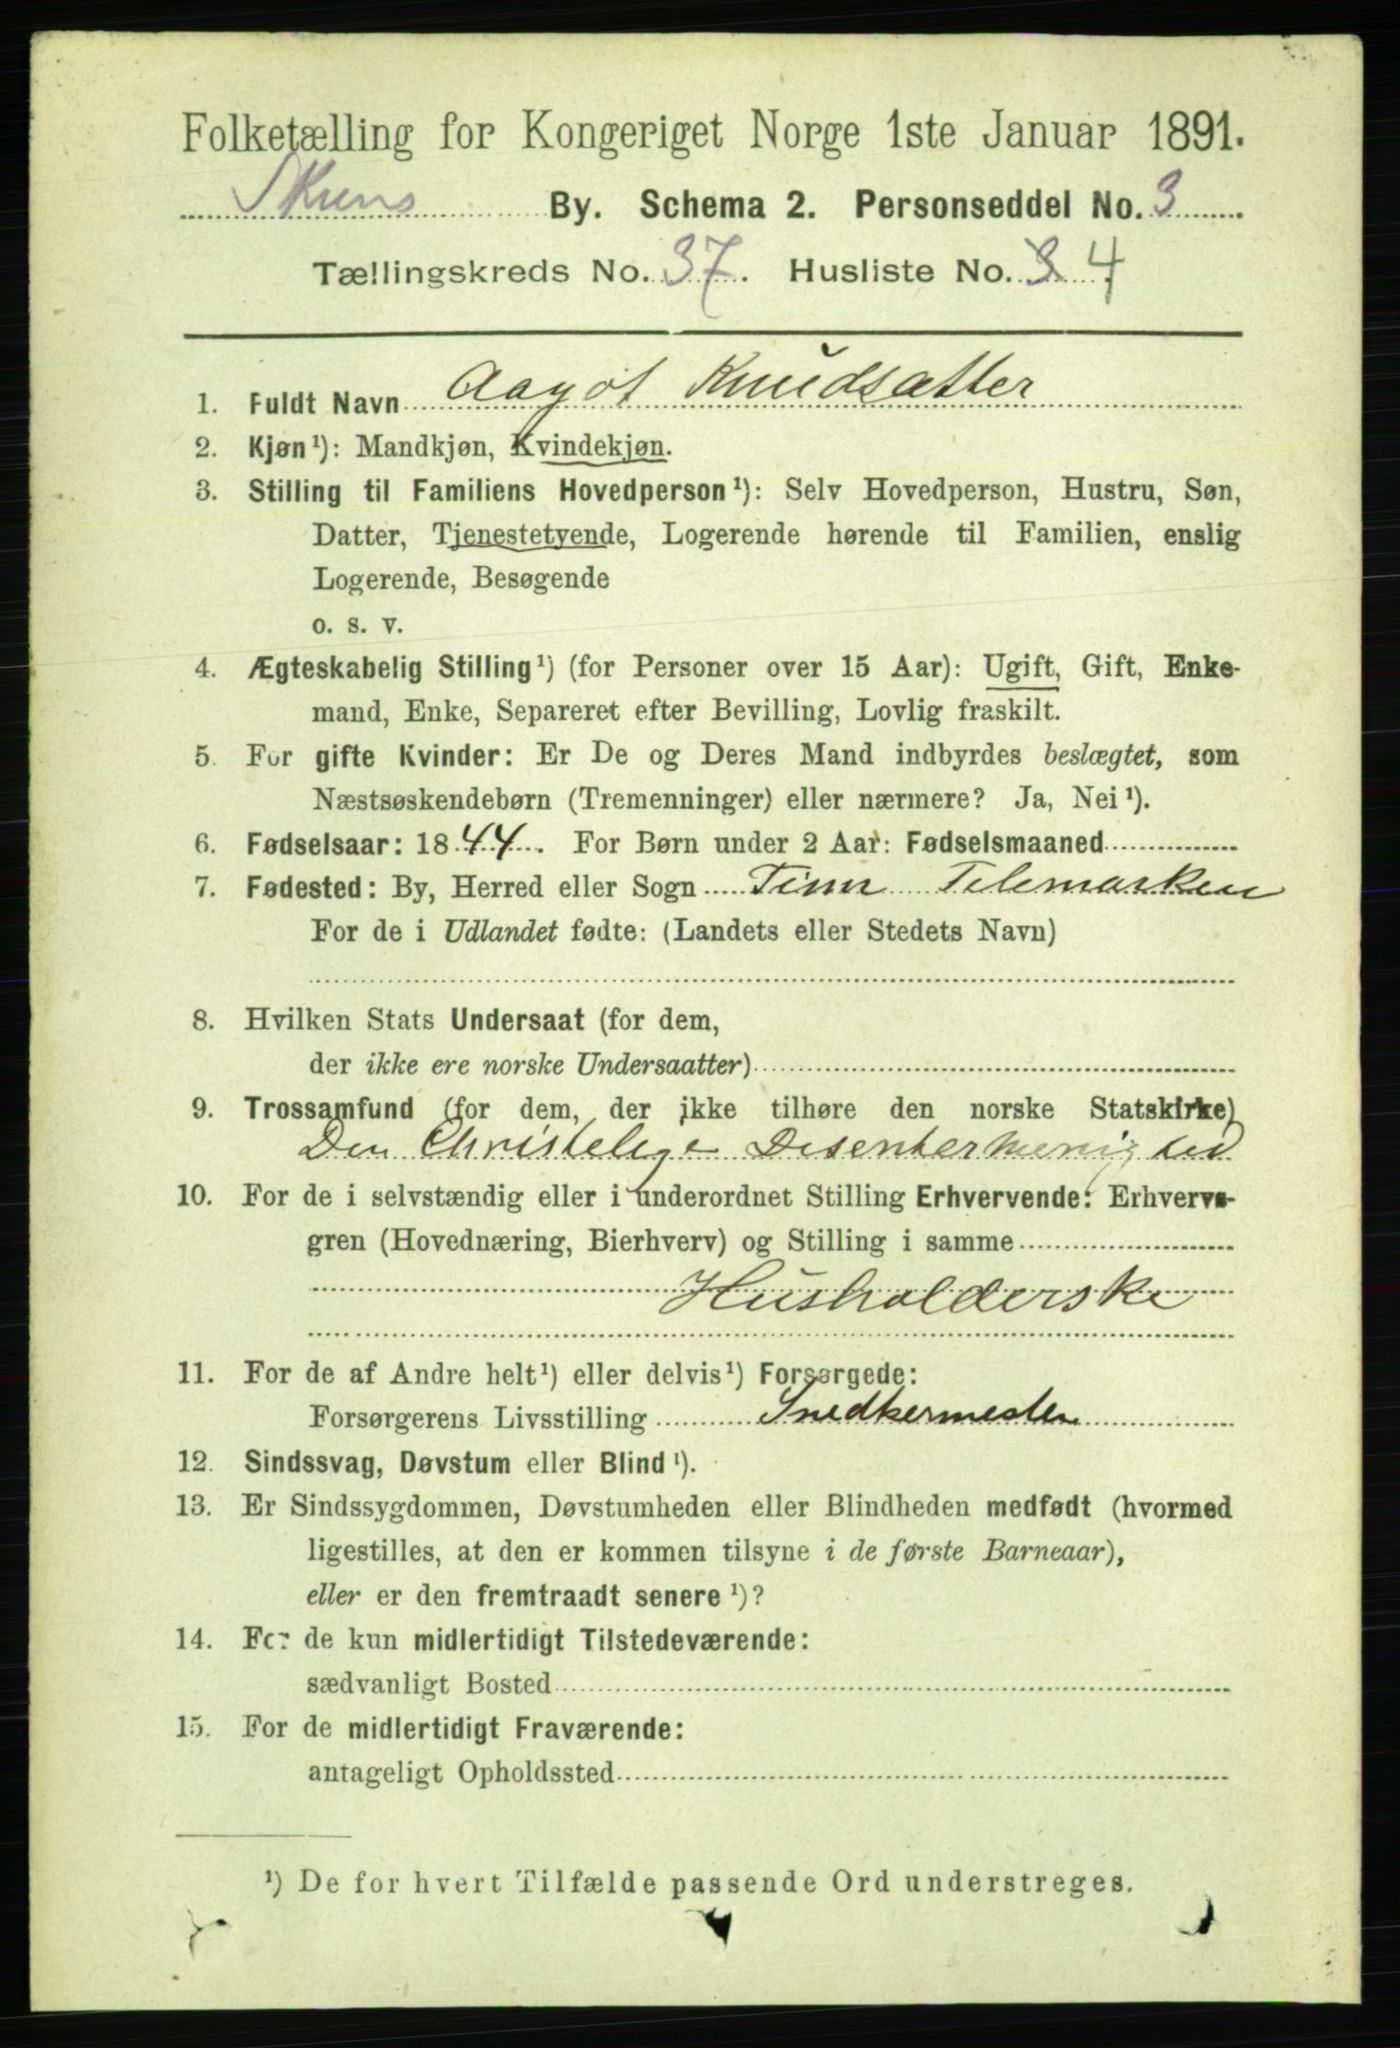 Folketælling for Kongeriget Norge 1ste Januar 1891.
Skiens By. Schema 2. Personseddel No. 3
Tællingskreds No. 37. Husliste No. 3 4
1. Fuldt Navn Aagot Knudsatter
2. Kjøn¹): Mandkjøn, Kvindekjøn.
3. Stilling til Familiens Hovedperson¹): Selv Hovedperson, Hustru, Søn,
Datter, Tjenestetyende, Logerende hørende til Familien, enslig
Logerende, Besøgende
o. s. v.
4. Ægteskabelig Stilling¹) (for Personer over 15 Aar): Ugift, Gift, Enke-
mand, Enke, Separeret efter Bevilling, Lovlig fraskilt.
5. For gifte Kvinder: Er De og Deres Mand indbyrdes beslægtet, som
Næstsøskendebørn (Tremenninger) eller nærmere? Ja, Nei¹).
6. Fødselsaar: 1844. For Børn under 2 Aar: Fødselsmaaned
7. Fødested: By, Herred eller Sogn Tinn Telemarken
For de i Udlandet fødte: (Landets eller Stedets Navn)
8. Hvilken Stats Undersaat (for dem,
der ikke ere norske Undersaatter)
9. Trossamfund (for dem, der ikke tilhøre den norske Statskirke)
Den Christelige Disentermenighed
10. For de i selvstændig eller i underordnet Stilling Erhvervende: Erhvervs-
gren (Hovednæring, Bierhverv) og Stilling i samme
Husholderske
11. For de af Andre helt¹) eller delvis¹) Forsørgede:
Forsørgerens Livsstilling Snedkermester
12. Sindssvag, Døvstum eller Blind¹).
13. Er Sindssygdommen, Døvstumheden eller Blindheden medfødt (hvormed
ligestilles, at den er kommen tilsyne i de første Barneaar),
eller er den fremtraadt senere¹)?
14. For de kun midlertidigt Tilstedeværende:
sædvanligt Bosted
15. For de midlertidigt Fraværende:
antageligt Opholdssted
¹) De for hvert Tilfælde passende Ord understreges.